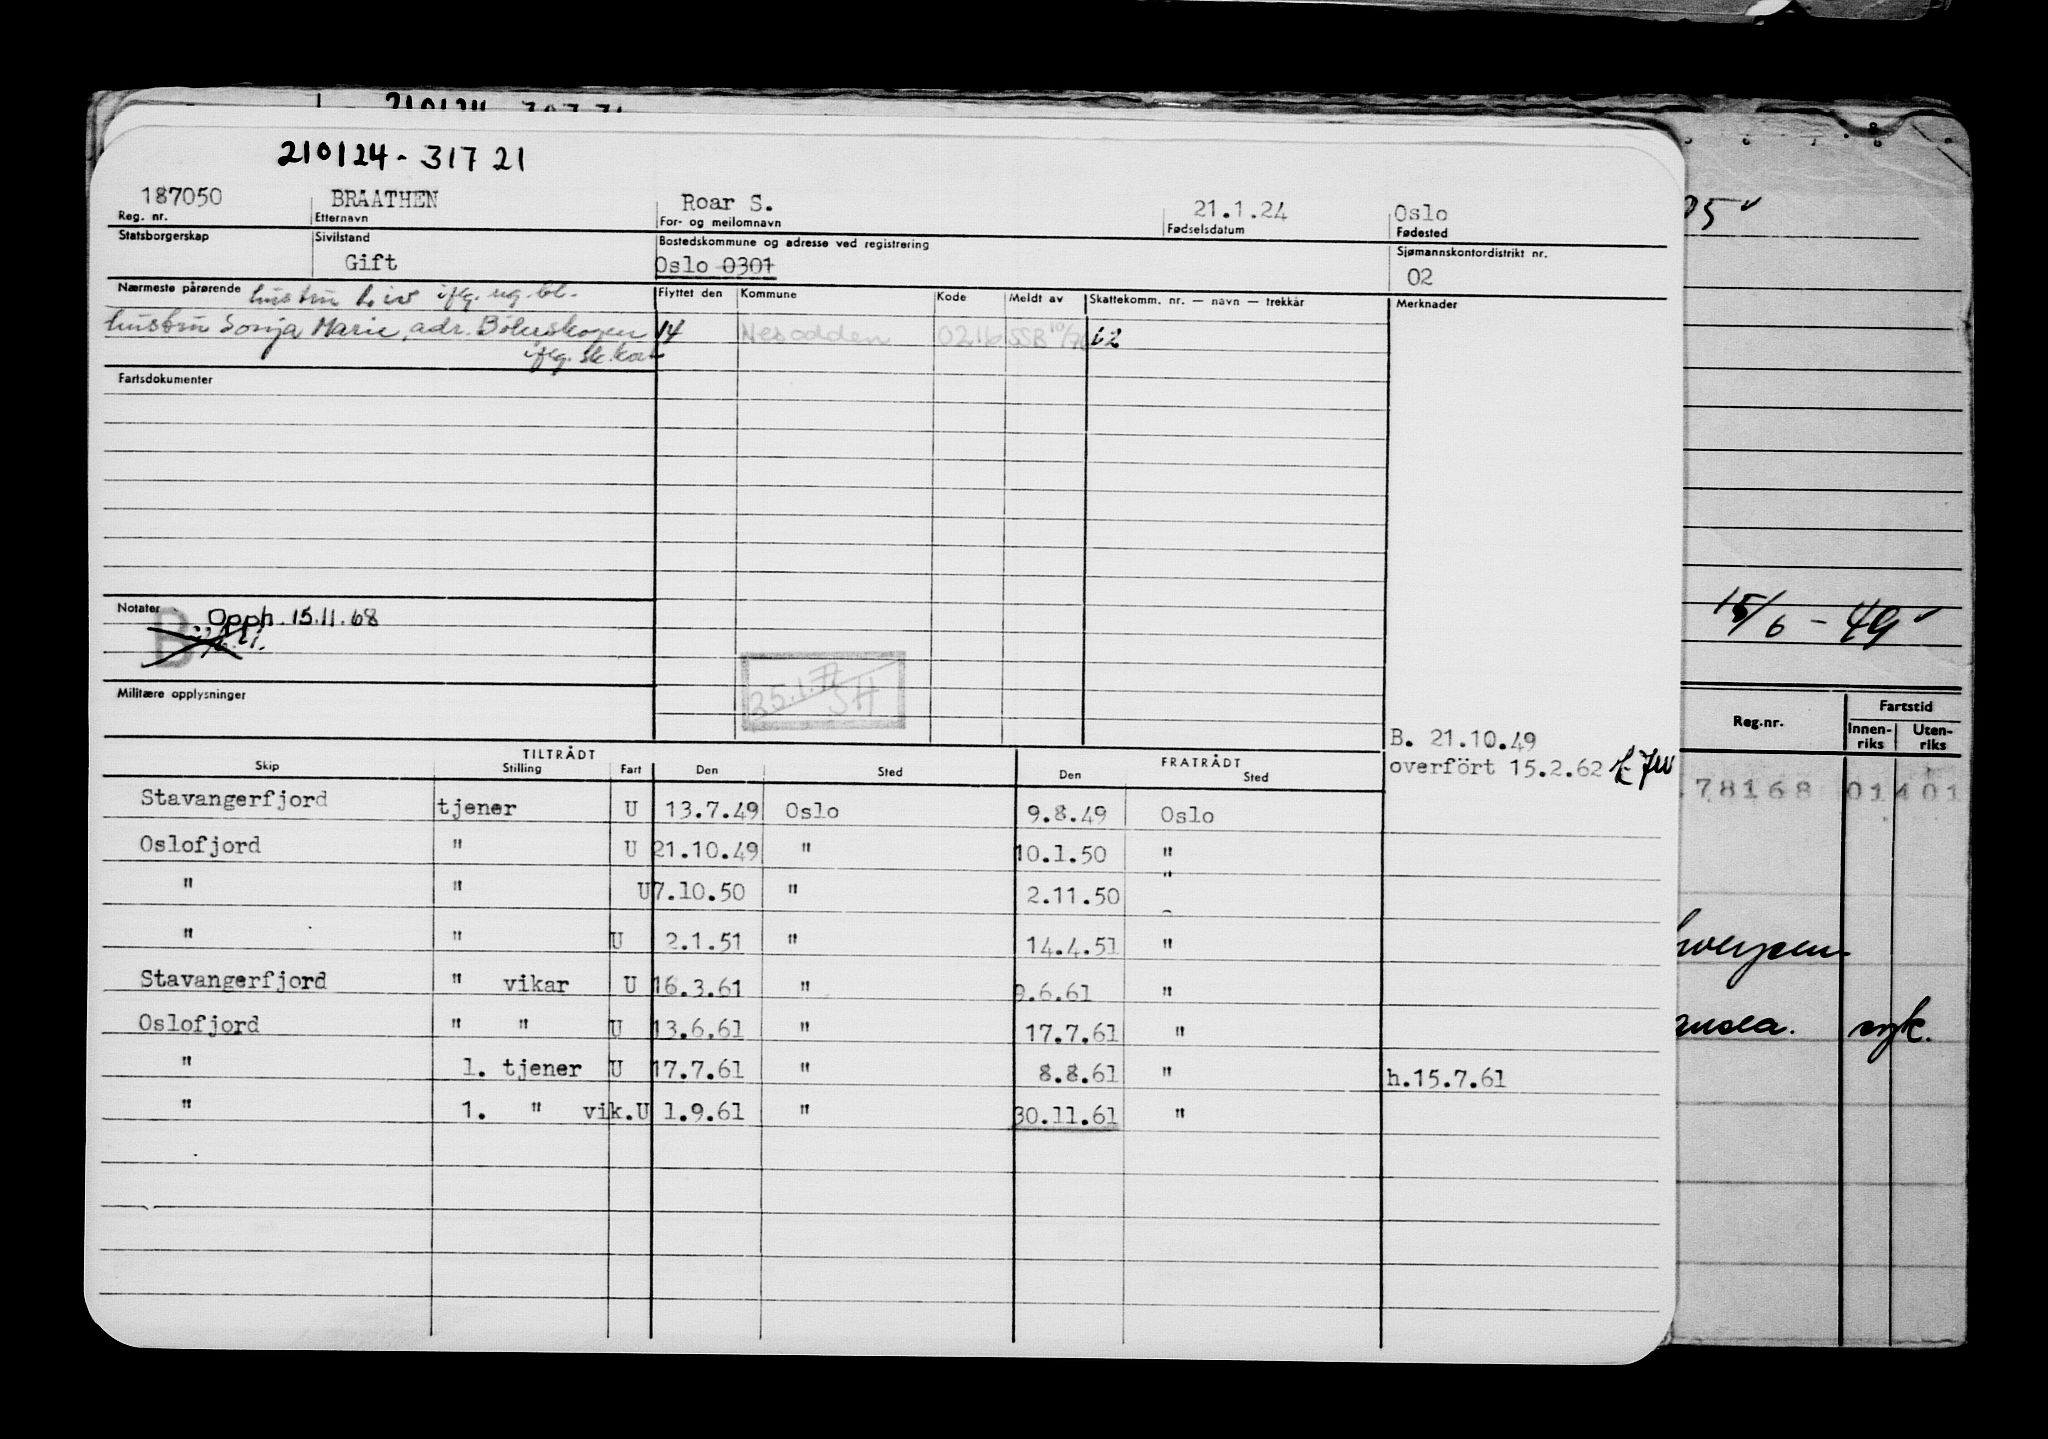 210124 - 317 21
187050 BRAATHEN Roar S. 21.1.24 Oslo
Reg. nr. Etternavn For- og mellomnavn Fødselsdatum Fødested
Statsborgerskap Sivilstand Bostedskommune og adresse ved registrering Sjømannskontordistrikt nr.
Gift Oslo 0301 02
Nærmeste pårørende hustru Liv iflg. ug. bl. Flyttet den Kommune Kode Meldt av Skattekomm. nr. — navn — trekkår Merknader
hustru Sonja Marie, adr. Bølerskogen 14 Nesodden 0216 SSB 10/70 62
iflg. sk. kort
Fartsdokumenter
Notater
B Opph. 15.11.68
25.1.77 SH
Militære opplysninger
B. 21.10.49
overført 15.2.62
TILTRÅDT FRATRÅDT
Skip Stilling Fart Den Sted Den Sted
Stavangerfjord tjener U 13.7.49 Oslo 9.8.49 Oslo
Oslofjord " U 21.10.49 " 10.1.50 "
" " U 7.10.50 " 2.11.50 "
" " U 2.1.51 " 14.4.51 "
Stavangerfjord " vikar U 16.3.61 " 9.6.61 "
Oslofjord " " U 13.6.61 " 17.7.61 "
" 1. tjener U 17.7.61 " 8.8.61 " h.15.7.61
" 1. " vik. U 1.9.61 " 30.11.61 "
15/6 - 49
Reg.nr. Fartstid
Innen-riks Uten-riks
78168 01401
syk.